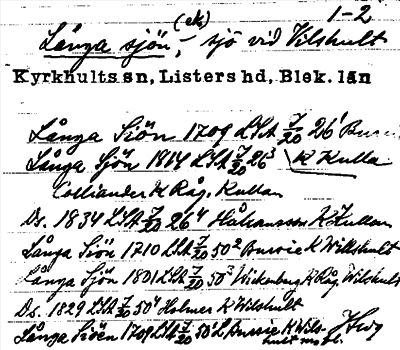 1-2
(ek)
Långa sjön, sjö vid Vilshult
Kyrkhults sn, Listers hd, Blek. län
Långa Siön 1709 LSA 7/20 26¹ Bussie
Långa Sjön 1814 LSA 7/20 26³ K Kulla
Colliander K Råg. Kullan
Ds. 1834 LSA 7/20 26⁴ Håkansson K Kullan
Långa Siön 1710 LSA 7/20 50² Bussie K Willshult
Långa Sjön 1801 LSA 7/20 50³ Wickenberg K Råg Wilshult
Ds. 1829 LSA 7/20 50⁴ Holmer K Wilshult
Långa Siöen 1709 LSA 7/20 50¹ L Bussie K Wils-
hult